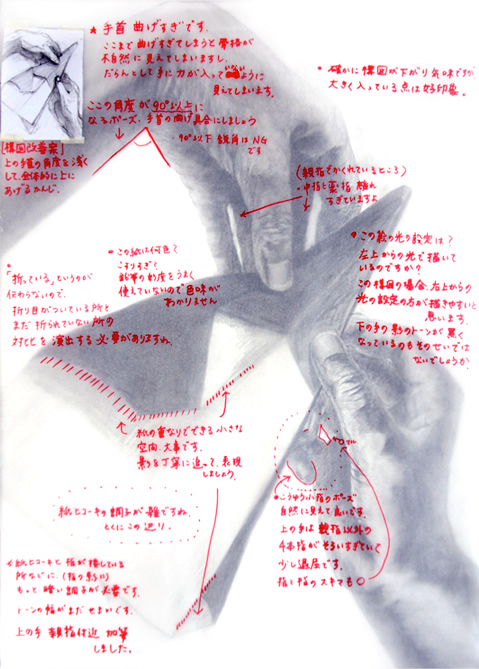 ★ 手首 曲げすぎです。
ここまで曲げすぎてしまうと骨格が
不自然に見えてしまいますし、
だらんとして手に力が入っていないように
見えてしまいます。
ここの角度が90°以上に
なるポーズ、手首の曲げ具合にしましょう
90°以下 鋭角はNG
です
[構図改善案]
上の手首の角度を浅く
して、全体的に上に
あげるかんじ。
• 確かに構図が下がり気味ですが、
大きく入っている点は好印象。
(親指でかくれているところ)
• 中指と薬指 離れ
すぎていますよ
• この絵の光の設定は?
左上からの光で描いて
いるのですか?
この構図の場合、右上からの
光の設定の方が描きやすいと
思います。
下の手の影のトーンが黒く
なっているのもそのせいでは
ないでしょうか
• この紙は何色?
こすりすぎ?
鉛筆の粒度をうまく
使えていないので色味が
わかりません
• 「折っている」というのが
伝わらないので、
折り目がついている所と
まだ折られていない所の
対比を演出する必要がありますね。
紙の重なりでできる小さな
空間 大事です。
影を丁寧に追って、表現
しましょう。
紙ヒコーキの調子が雑ですね、
とくにこの辺り。
• こうゆう小指のポーズ
自然に見えて良いです。
上の手は親指以外の
4本指がそろいすぎていて
少し退屈です。
指と指のスキマも◎
☆紙ヒコーキと指が接している
所などに、(指の影に)
もっと暗い調子が必要です。
トーンの幅がまだせまいです。
上の手 親指付近 加筆
しました。